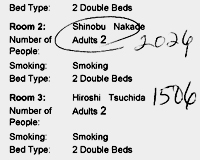 Bed Type: 2 Double Beds
Room 2: Shinobu Nakade
Number of People: Adults 2 2026
Smoking: Smoking
Bed Type: 2 Double Beds
Room 3: Hiroshi Tsuchida 1506
Number of People: Adults 2
Smoking: Smoking
Bed Type: 2 Double Beds